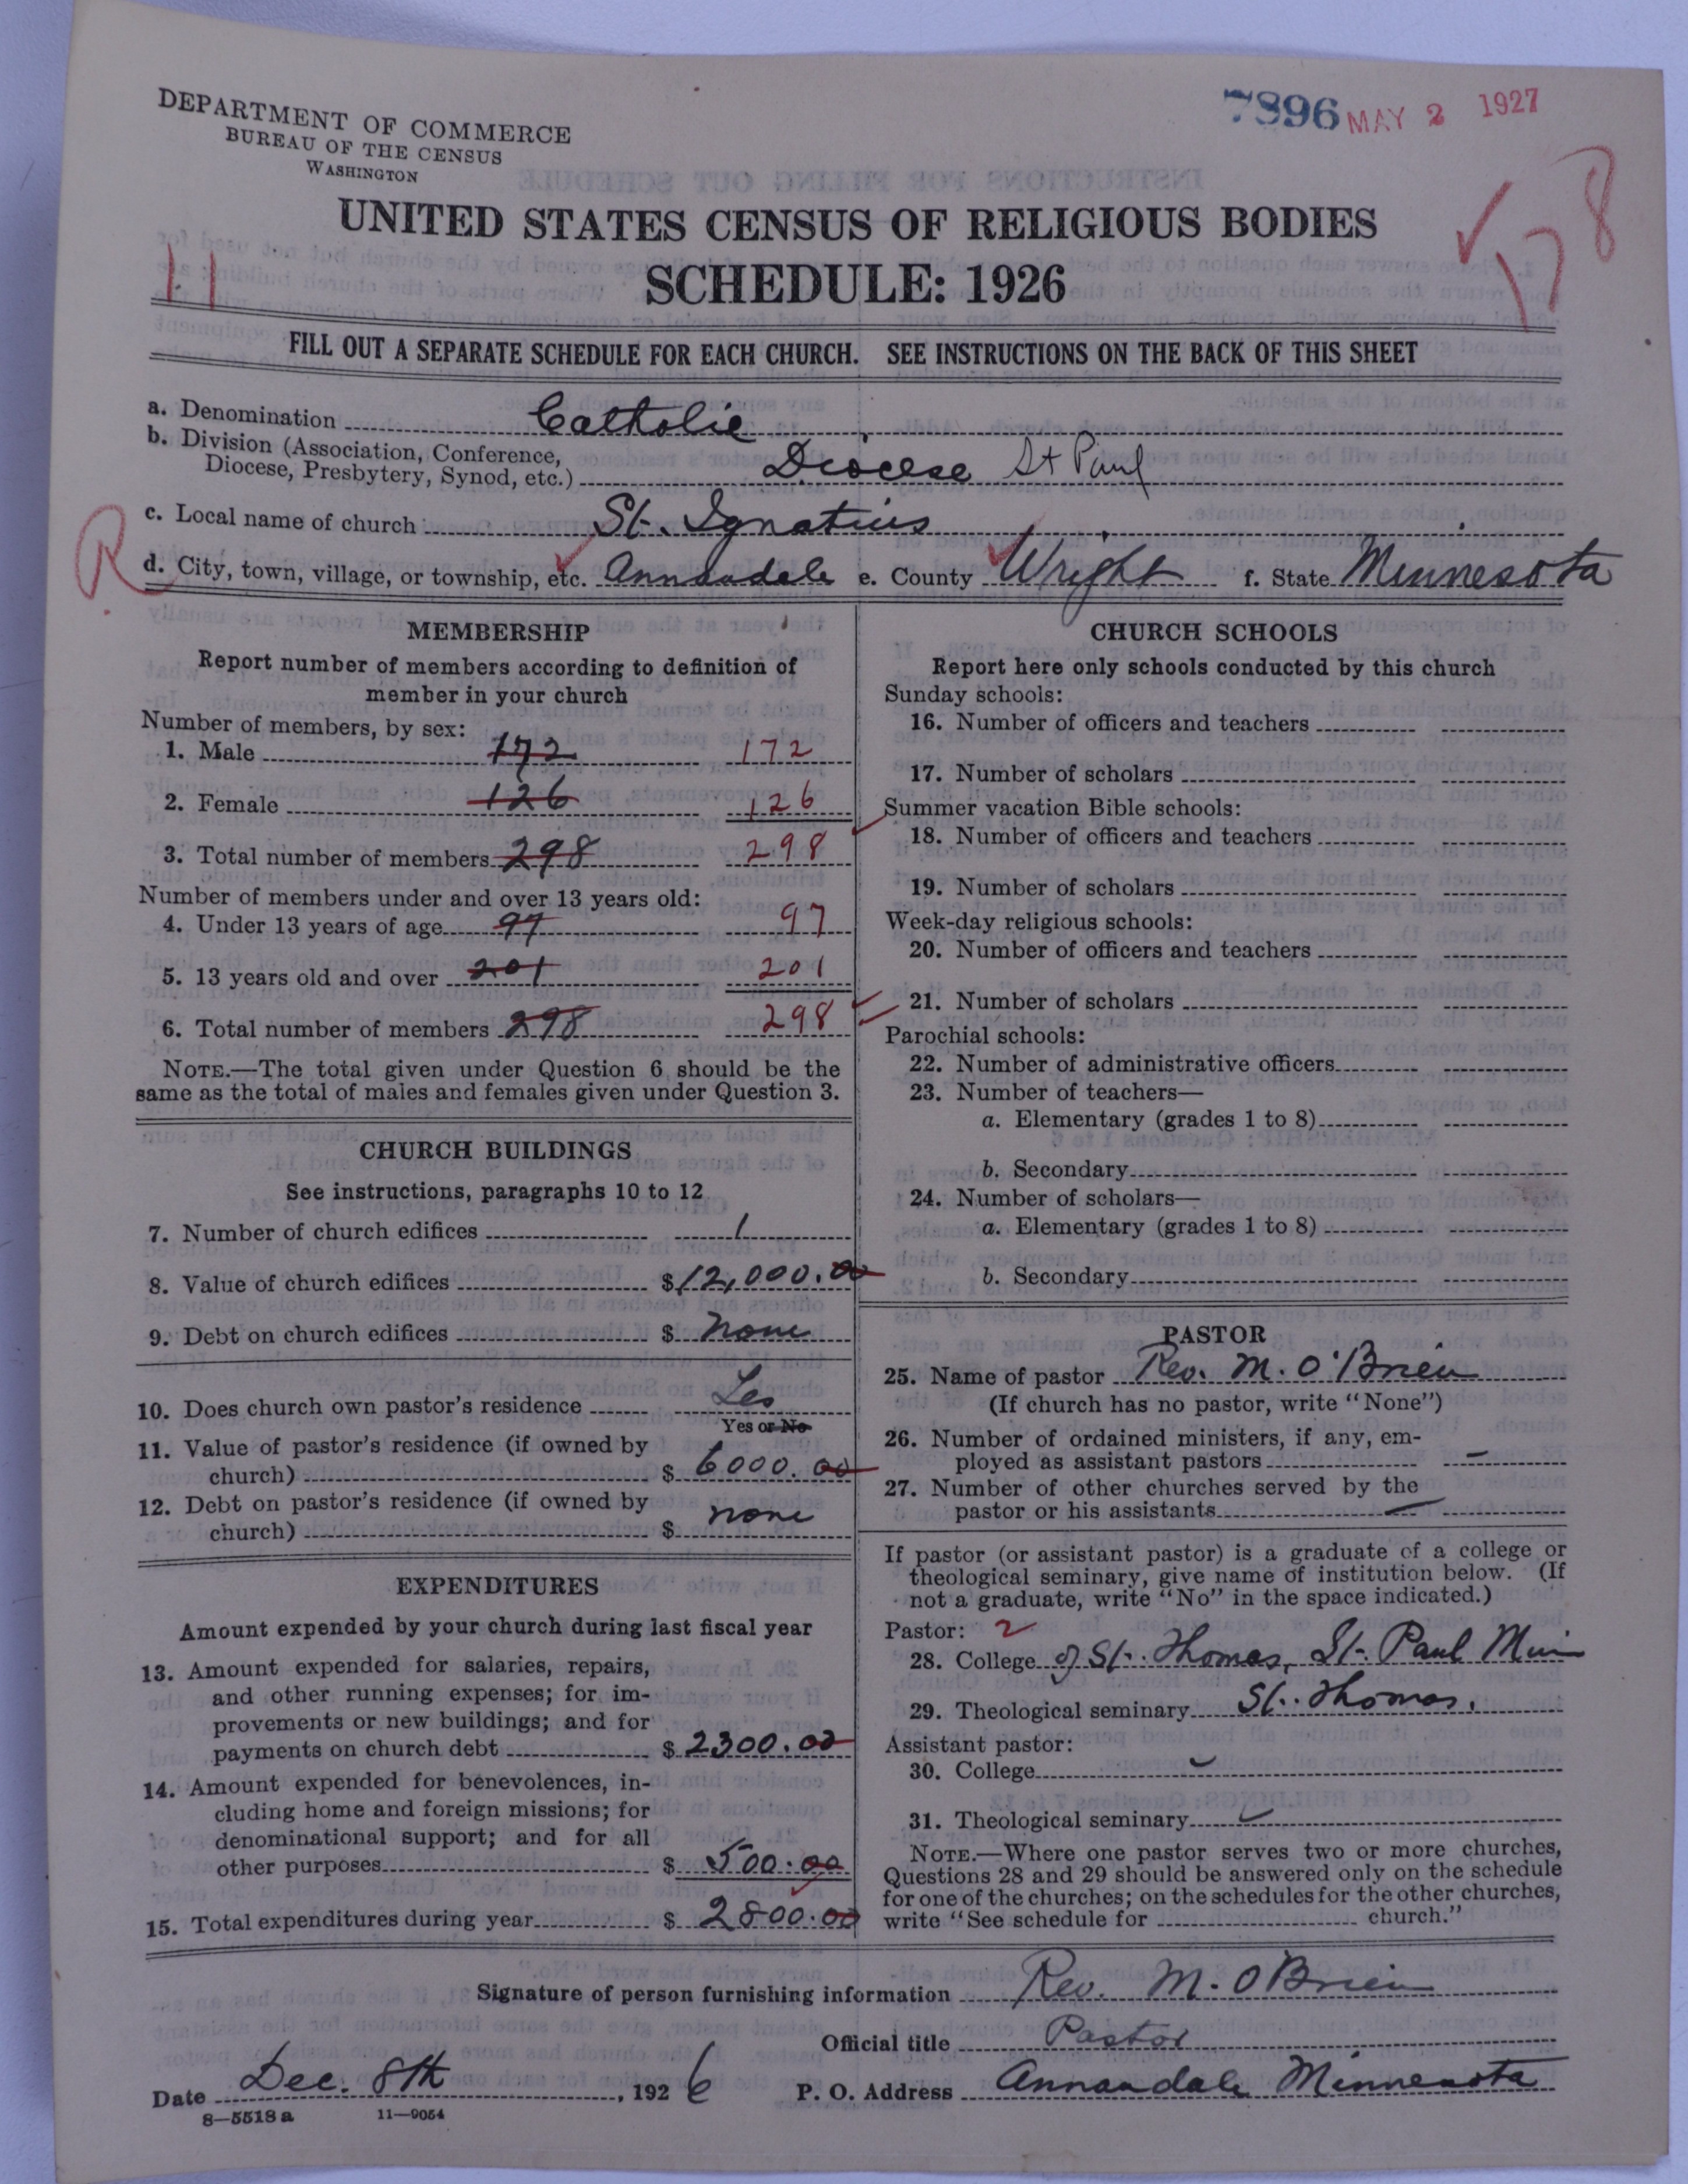 DEPARTMENT OF COMMERCE
BUREAU OF THE CENSUS
WASHINGTON
7896 MAY 2 1927
UNITED STATES CENSUS OF RELIGIOUS BODIES
SCHEDULE: 1926
11
178
FILL OUT A SEPARATE SCHEDULE FOR EACH CHURCH. SEE INSTRUCTIONS ON THE BACK OF THIS SHEET
a. Denomination Catholic
b. Division (Association, Conference,
Diocese, Presbytery, Synod, etc.) Diocese St Paul
c. Local name of church St. Ignatius
R
d. City, town, village, or township, etc. Annandale e. County Wright f. State Minnesota
MEMBERSHIP
Report number of members according to definition of
member in your church
Number of members, by sex:
1. Male 172 172
2. Female 126 126
3. Total number of members 298 298
Number of members under and over 13 years old:
4. Under 13 years of age 97 97
5. 13 years old and over 201 201
6. Total number of members 298 298
NOTE.—The total given under Question 6 should be the
same as the total of males and females given under Question 3.
CHURCH BUILDINGS
See instructions, paragraphs 10 to 12
7. Number of church edifices 1
8. Value of church edifices $12,000.00
9. Debt on church edifices $ none
10. Does church own pastor's residence Yes
Yes or No
11. Value of pastor's residence (if owned by
church) $ 6000.00
12. Debt on pastor's residence (if owned by
church) $ none
EXPENDITURES
Amount expended by your church during last fiscal year
13. Amount expended for salaries, repairs,
and other running expenses; for im-
provements or new buildings; and for
payments on church debt $ 2300.00
14. Amount expended for benevolences, in-
cluding home and foreign missions; for
denominational support; and for all
other purposes $ 500.00
15. Total expenditures during year $ 2800.00
CHURCH SCHOOLS
Report here only schools conducted by this church
Sunday schools:
16. Number of officers and teachers
17. Number of scholars
Summer vacation Bible schools:
18. Number of officers and teachers
19. Number of scholars
Week-day religious schools:
20. Number of officers and teachers
21. Number of scholars
Parochial schools:
22. Number of administrative officers
23. Number of teachers—
a. Elementary (grades 1 to 8)
b. Secondary
24. Number of scholars—
a. Elementary (grades 1 to 8)
b. Secondary
PASTOR
25. Name of pastor Rev. M. O'Brien
(If church has no pastor, write "None")
26. Number of ordained ministers, if any, em-
ployed as assistant pastors —
27. Number of other churches served by the
pastor or his assistants —
If pastor (or assistant pastor) is a graduate of a college or
theological seminary, give name of institution below. (If
not a graduate, write "No" in the space indicated.)
Pastor: 2
28. College of St. Thomas, St. Paul Min
29. Theological seminary St. Thomas.
Assistant pastor:
30. College
31. Theological seminary
NOTE.—Where one pastor serves two or more churches,
Questions 28 and 29 should be answered only on the schedule
for one of the churches; on the schedules for the other churches,
write "See schedule for church."
Signature of person furnishing information Rev. M. O'Brien
Official title Pastor
Date Dec. 8th, 1926 P. O. Address Annandale Minnesota
8—5518 a 11—9054